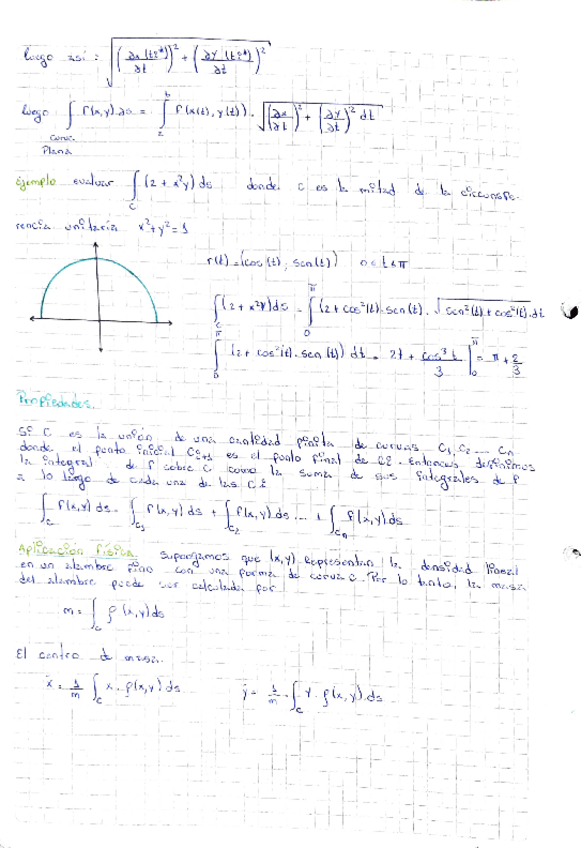 luego así: √((∂x(ti*)/∂t)² + (∂y(ti*)/∂t)²)
luego ∫ f(x,y) ds = ∫ₐᵇ f(x(t), y(t)) · √((∂x/∂t)² + (∂y/∂t)²) dt
Curva
Plana
Ejemplo evaluar ∫_C (2 + x²y) ds donde c es la mitad de la circunfe-
rencia unitaria x²+y²=1
r(t) = (cos(t), sen(t)) 0≤t≤π
∫_C (2+x²y) ds = ∫₀^π (2+cos²(t)·sen(t)·√(sen²(t)+cos²(t)) dt
∫₀^π (2+cos²(t)·sen(t)) dt = 2t + cos³t/3 |₀^π = π + 2/3
Propiedades.
Si C es la unión de una cantidad finita de curvas C₁, C₂ ... Cn
donde el punto inicial Ci+1 es el punto final de Ci. Entonces definimos
la integral de f sobre C como la suma de sus integrales de f
a lo largo de cada una de las Ci
∫_C f(x,y) ds = ∫_C₁ f(x,y) ds + ∫_C₂ f(x,y) ds ... + ∫_Cn f(x,y) ds
Aplicación física. Supongamos que (x,y) representan la densidad lineal
en un alambre fino con una forma de curva C. Por lo tanto, la masa
del alambre puede ser calculada por
m = ∫_C ρ(x,y) ds
El centro de masa.
x̄ = 1/m ∫_C x · ρ(x,y) ds ȳ = 1/m · ∫_C y · ρ(x,y) ds